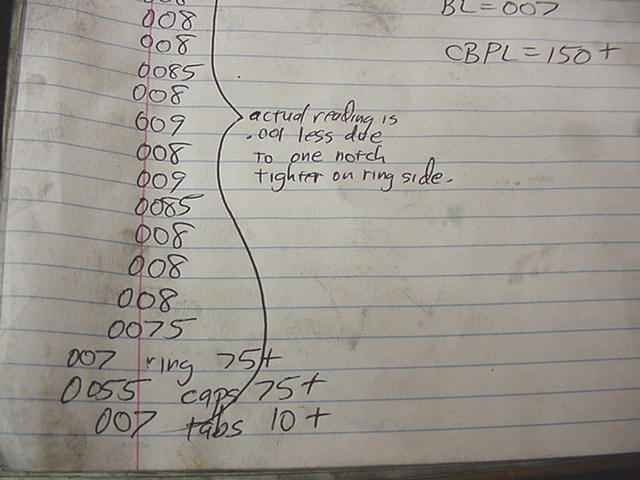 008
BL=007
008
CBPL=150+
0085
008
009
actual reading is
.001 less due
008
to one notch
009
tighter on ring side.
0085
008
008
008
0075
007 ring 75+
0055 caps 75+
007 tabs 10+